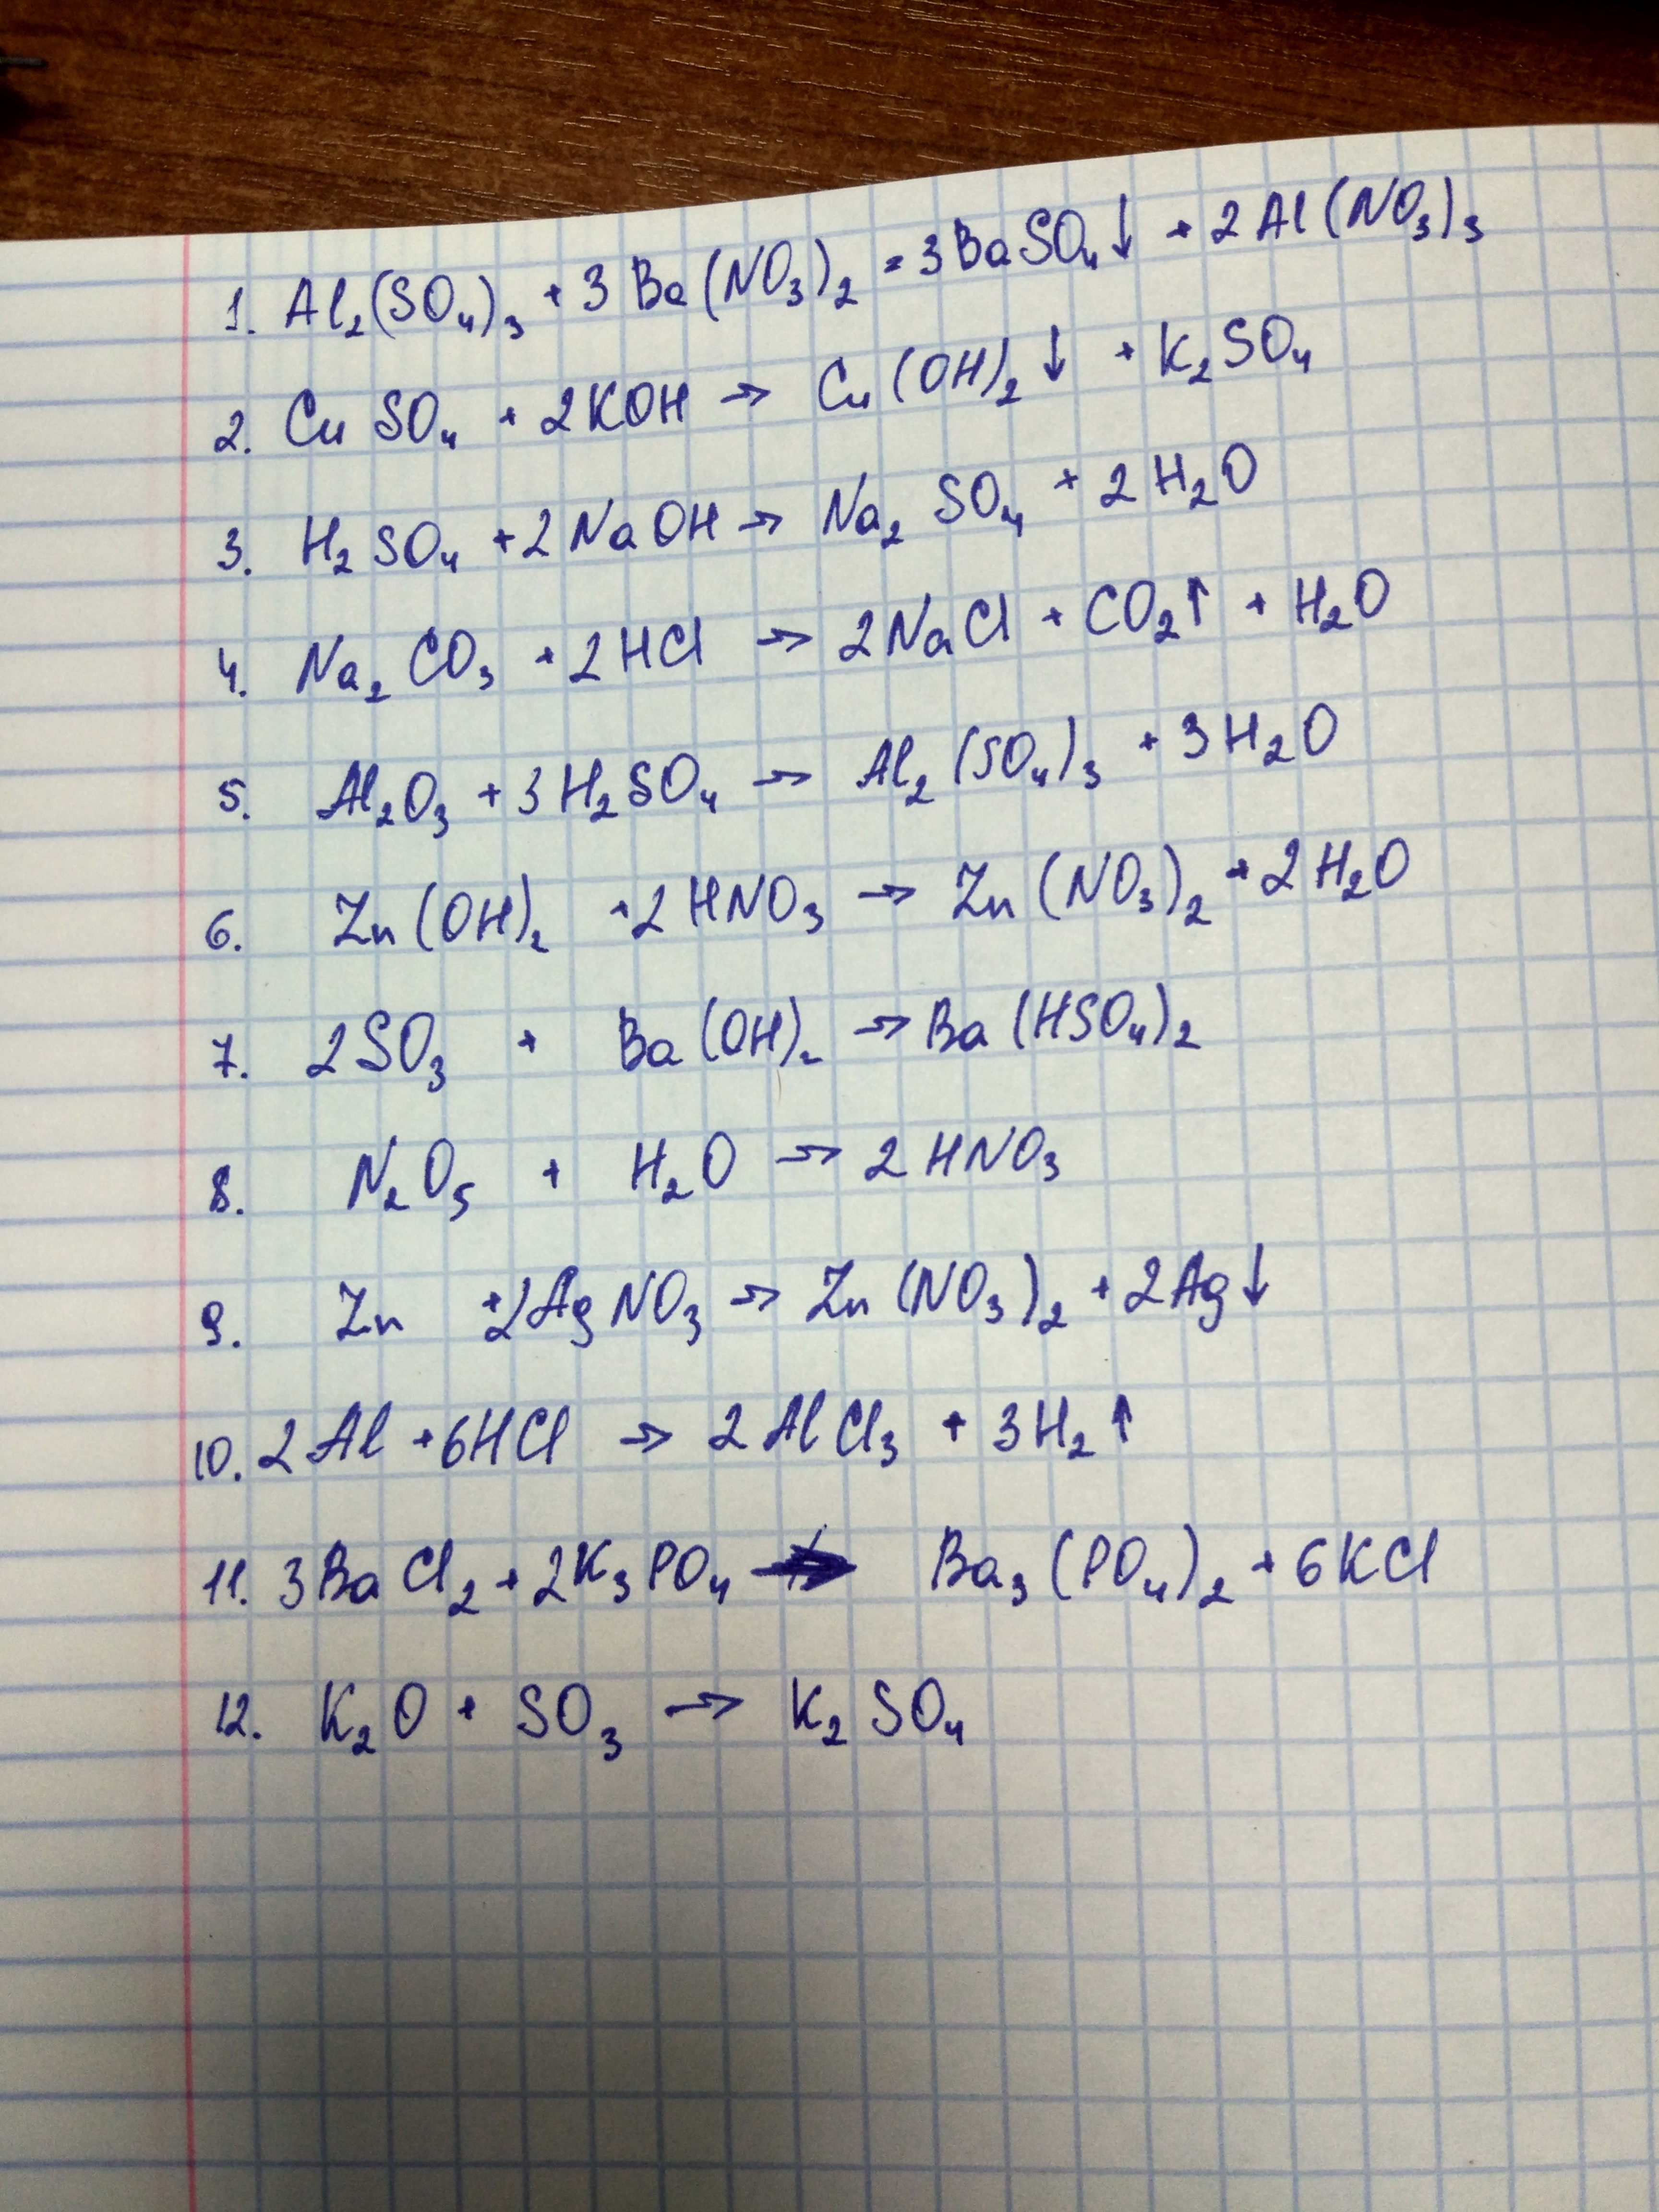 1. Al₂(SO₄)₃ + 3Ba(NO₃)₂ = 3BaSO₄↓ + 2Al(NO₃)₃
2. CuSO₄ + 2KOH → Cu(OH)₂↓ + K₂SO₄
3. H₂SO₄ + 2NaOH → Na₂SO₄ + 2H₂O
4. Na₂CO₃ + 2HCl → 2NaCl + CO₂↑ + H₂O
5. Al₂O₃ + 3H₂SO₄ → Al₂(SO₄)₃ + 3H₂O
6. Zn(OH)₂ + 2HNO₃ → Zn(NO₃)₂ + 2H₂O
7. 2SO₃ + Ba(OH)₂ → Ba(HSO₄)₂
8. N₂O₅ + H₂O → 2HNO₃
9. Zn + 2AgNO₃ → Zn(NO₃)₂ + 2Ag↓
10. 2Al + 6HCl → 2AlCl₃ + 3H₂↑
11. 3BaCl₂ + 2K₃PO₄ → Ba₃(PO₄)₂ + 6KCl
12. K₂O + SO₃ → K₂SO₄